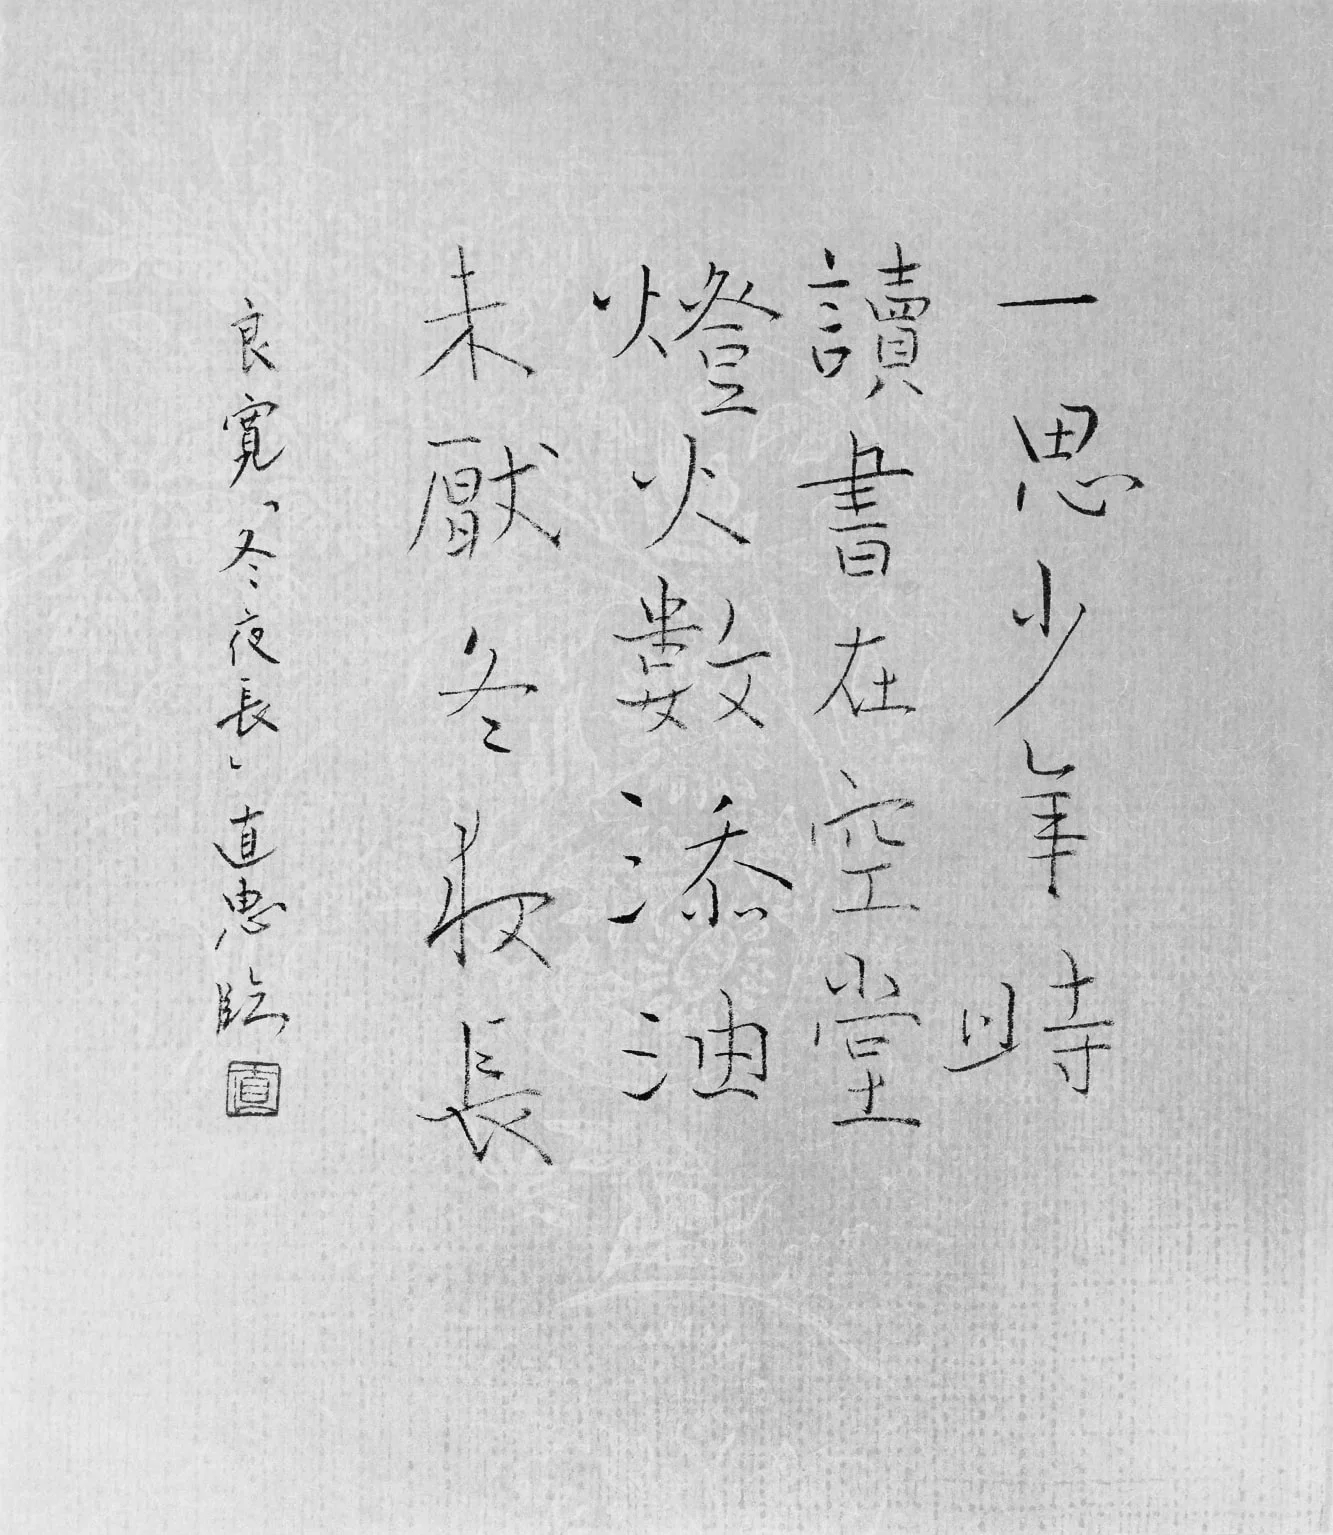 一思少年時
讀書在空堂
燈火數添油
未厭冬夜長
良寛「冬夜長」直臨
直